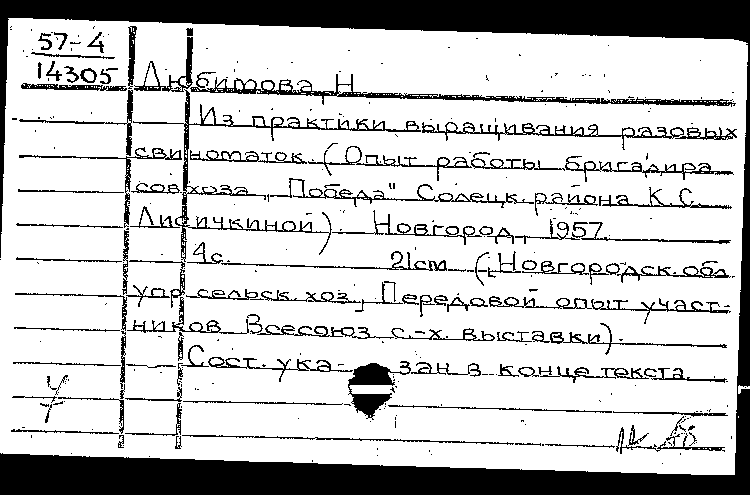 57-4
14305
Любимова, Н
Из практики выращивания разовых
свиноматок. (Опыт работы бригадира
совхоза „Победа" Солецк. района К. С.
Лисичкиной). Новгород, 1957.
4с. 21см (Новгородск. обл
упр сельск. хоз., Передовой опыт участ-
ников Всесоюз с.-х. выставки).
Сост. ука- зан в конце текста